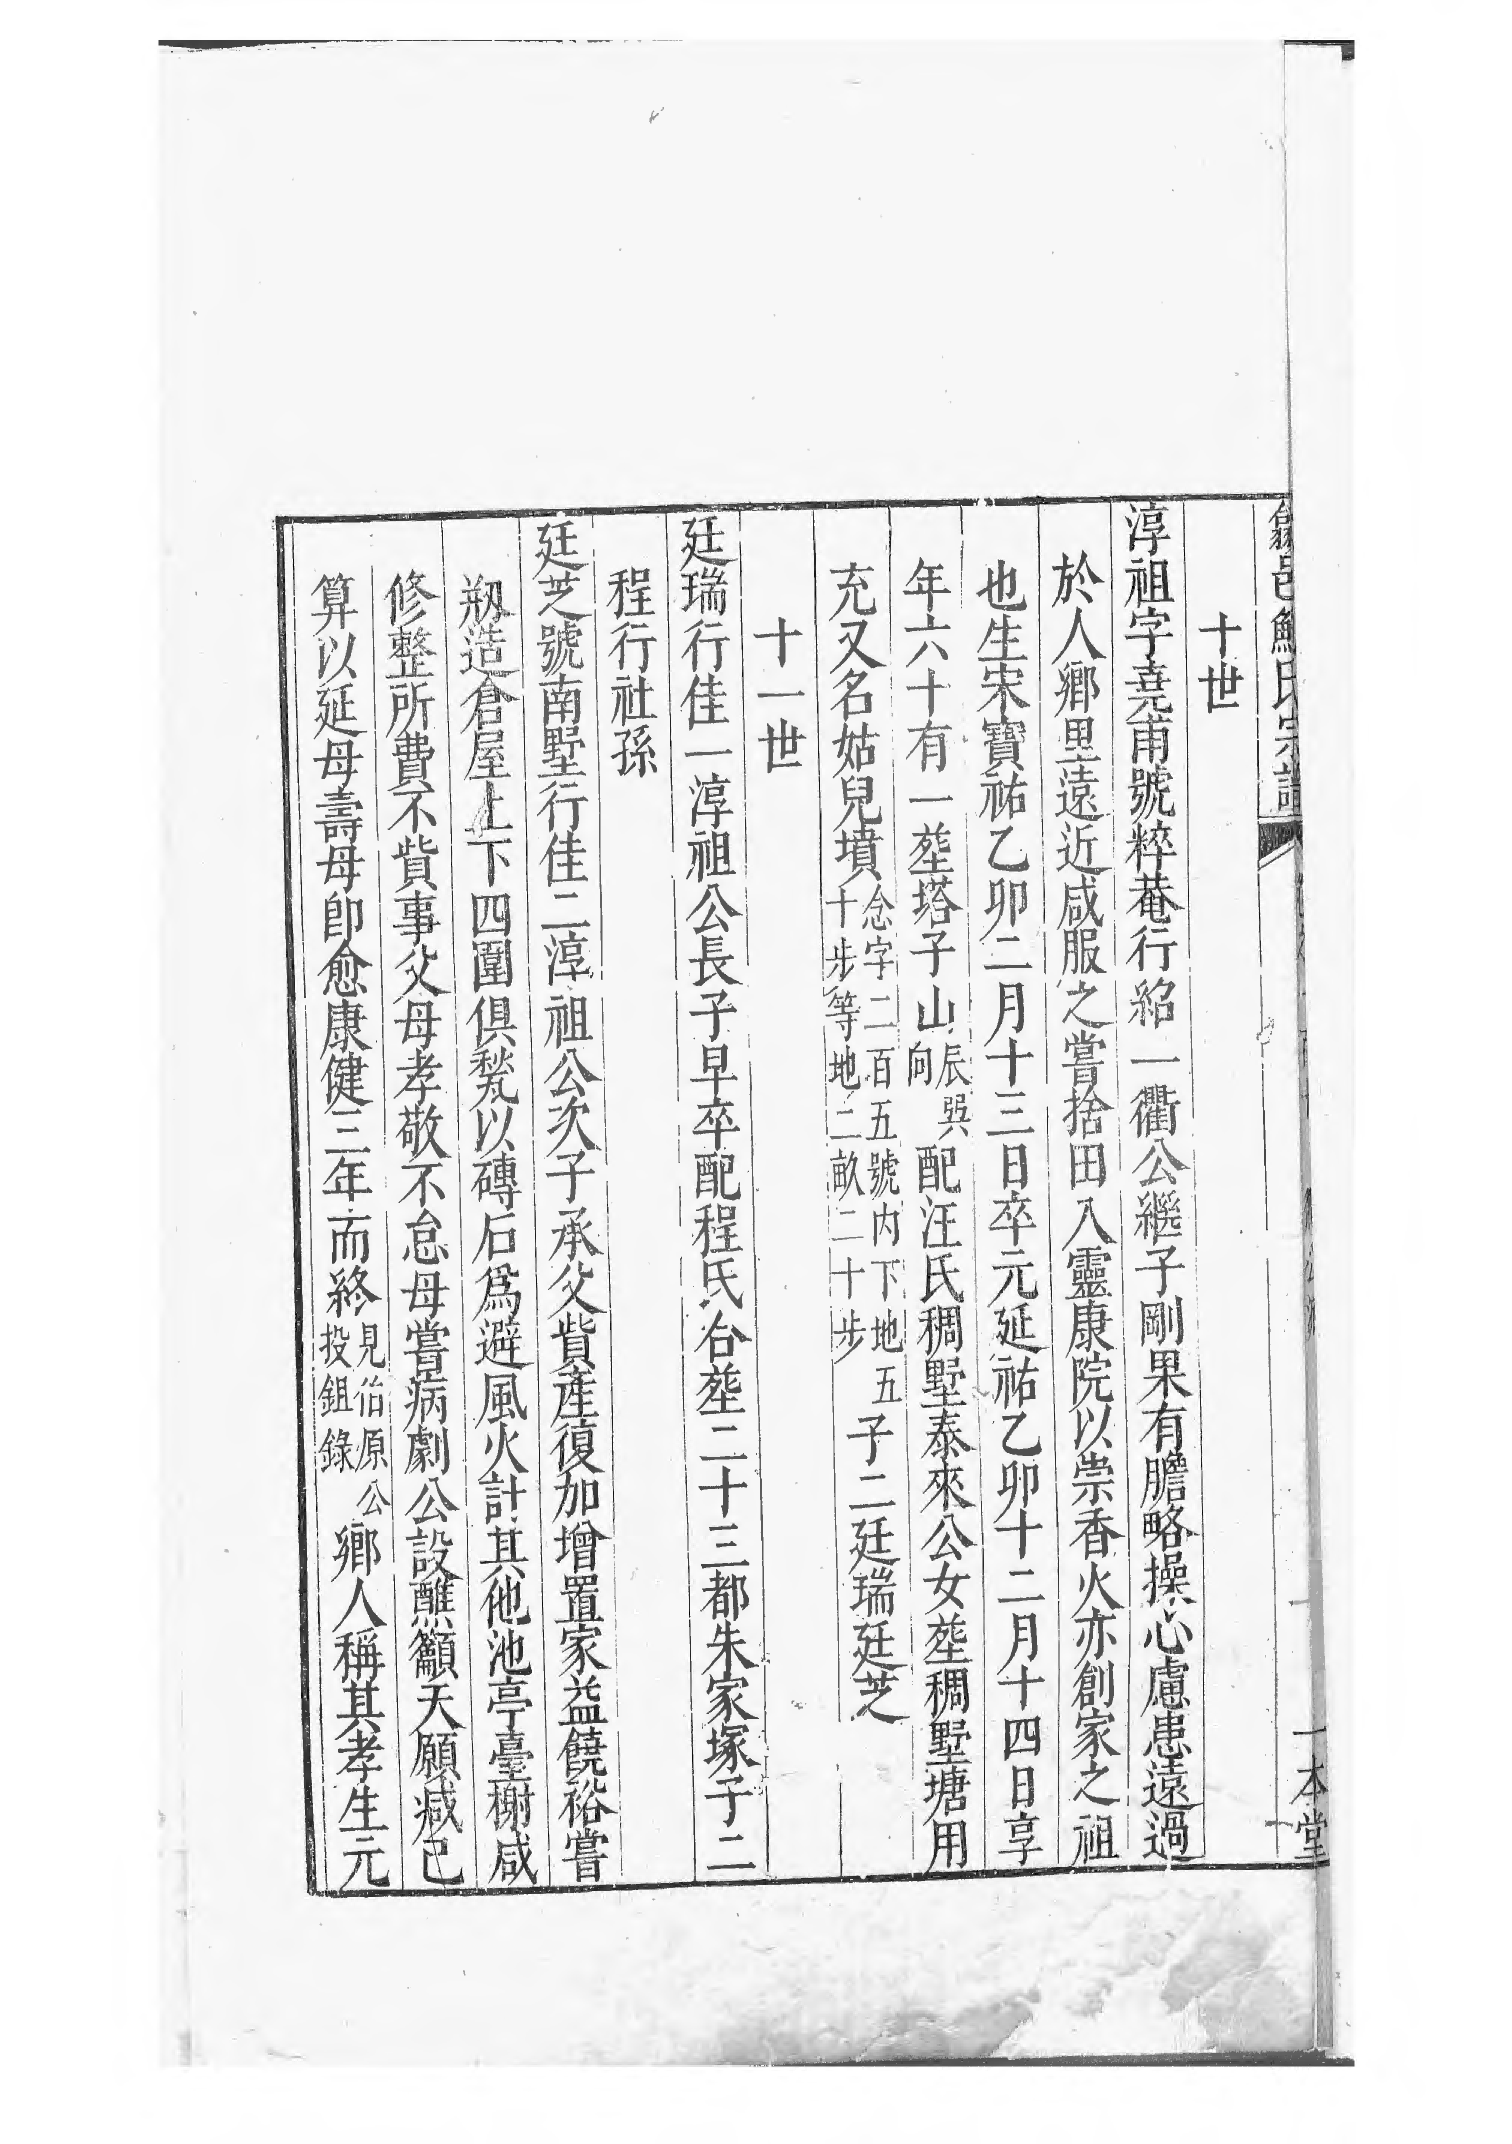 歙邑鮑氏宗譜
一本堂
十世
淳祖字堯甫號粹菴行紹一衢公繼子剛果有膽略操心慮患遠過
於人鄉里遠近咸服之嘗捨田入靈康院以崇香火亦創家之祖
也生宋寶祐乙卯二月十三日卒元延祐乙卯十二月十四日享
年六十有一塟塔子山辰巽向配汪氏稠墅泰來公女塟稠墅塘用
充又名姑兒墳念字二百五號内下地五十步等地二畝二十步子二廷瑞廷芝
十一世
廷瑞行佳一淳祖公長子早卒配程氏合塟二十三都朱家塚子二
程行社孫
廷芝號南墅行佳二淳祖公次子承父貲產復加增置家益饒裕嘗
剏造倉屋上下四圍俱甃以磚石爲避風火計其他池亭臺榭咸
修整所費不貲事父母孝敬不怠母嘗病劇公設醮籲天願減己
算以延母壽母卽愈康健三年而終見伯原公投鉏錄鄉人稱其孝生元